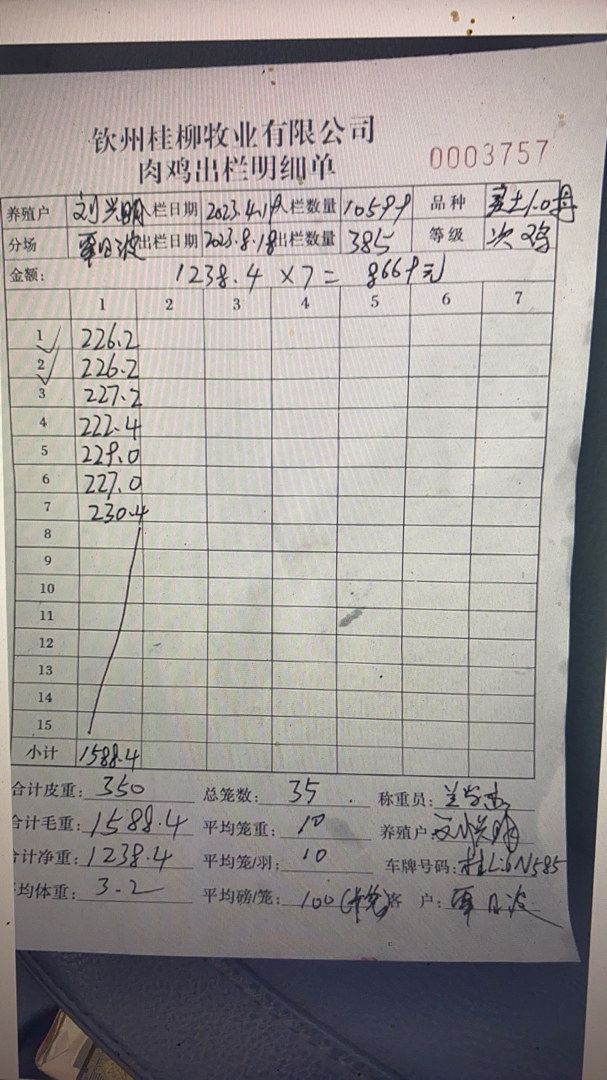 钦州桂柳牧业有限公司
肉鸡出栏明细单
0003757
养殖户 刘兴明 入栏日期 2023.4.19 入栏数量 10599 品种 1.0
分场 覃日波 出栏日期 2023.8.18 出栏数量 385 等级 次鸡
金额: 1238.4 ×7= 8669元
1 2 3 4 5 6 7
1 226.2
2 226.2
3 227.2
4 222.4
5 229.0
6 227.0
7 230.4
8
9
10
11
12
13
14
15
小计 1588.4
合计皮重: 350 总笼数: 35 称重员:
合计毛重: 1588.4 平均笼重: 10 养殖户: 刘兴明
合计净重: 1238.4 平均笼/羽: 10 车牌号码: 桂L6N585
平均体重: 3.2 平均磅/笼: 100 客 户: 覃日波